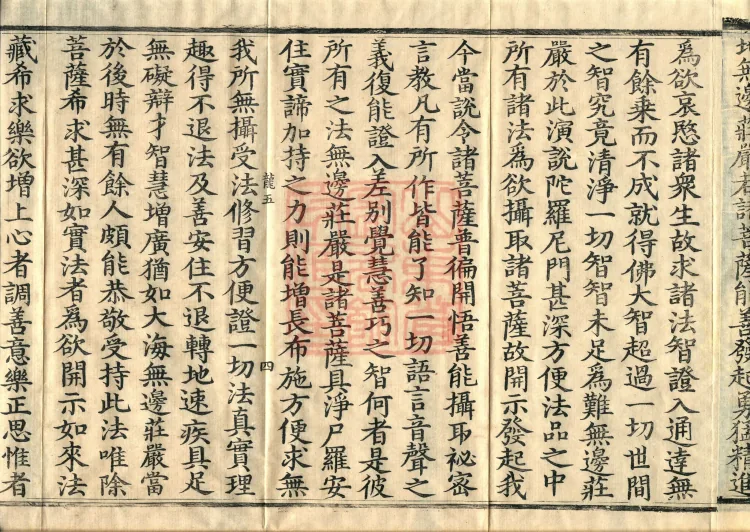 無邊莊嚴若諸菩薩能善發起勇猛精進
為欲哀愍諸衆生故求諸法智證入通達無
有餘乗而不成就得佛大智超過一切世間
之智究竟清淨一切智智未足為難無邊莊
嚴於此演說陀羅尼門甚深方便法品之中
所有諸法為欲攝取諸菩薩故開示發起我
今當說令諸菩薩普徧開悟善能攝取祕密
言教凡有所作皆能了知一切語言音聲之
義復能證入差別覺慧善巧之智何者是彼
所有之法無邊莊嚴是諸菩薩具淨尸羅安
住實諦加持之力則能增長布施方便求無
龍五 四
我所無攝受法修習方便證一切法真實理
趣得不退法及善安住不退轉地速疾具足
無礙辯才智慧增廣猶如大海無邊莊嚴當
於後時無有餘人頗能恭敬受持此法唯除
菩薩希求甚深如實法者為欲開示如來法
藏希求樂欲增上心者調善意樂正思惟者